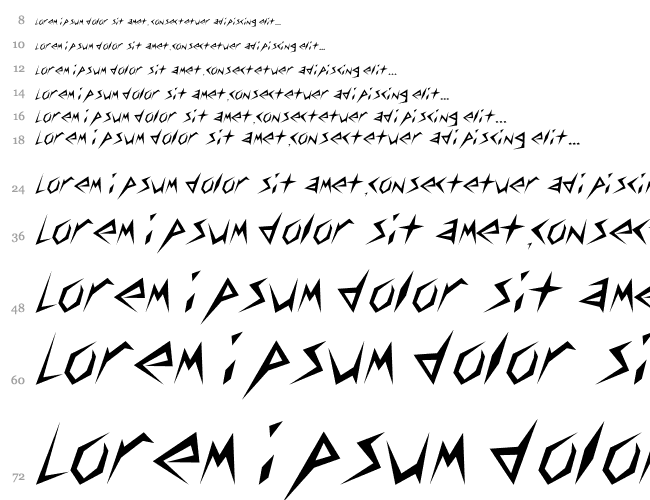 8 Lorem ipsum dolor sit amet, consectetuer adipiscing elit...
10 Lorem ipsum dolor sit amet, consectetuer adipiscing elit...
12 Lorem ipsum dolor sit amet, consectetuer adipiscing elit...
14 Lorem ipsum dolor sit amet, consectetuer adipiscing elit...
16 Lorem ipsum dolor sit amet, consectetuer adipiscing elit...
18 Lorem ipsum dolor sit amet, consectetuer adipiscing elit...
24 Lorem ipsum dolor sit amet, consectetuer adipisci
36 Lorem ipsum dolor sit amet, consec
48 Lorem ipsum dolor sit ame
60 Lorem ipsum dolor si
72 Lorem ipsum dolo